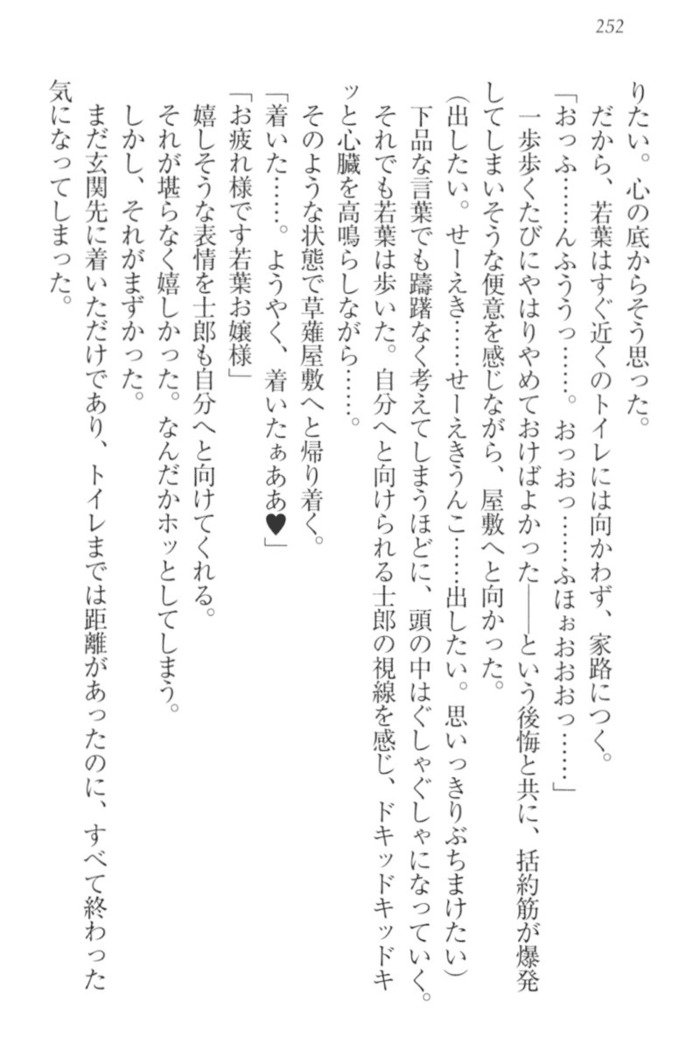 252
りたい。心の底からそう思った。
だから、若葉はすぐ近くのトイレには向かわず、家路につく。
「おっふ……んふううっ……。おっおっ……ふほぉおおおっ……」
一歩歩くたびにやはりやめておけばよかった――という後悔と共に、括約筋が爆発
してしまいそうな便意を感じながら、屋敷へと向かった。
(出したい。せーえき……せーえきうんこ……出したい。思いっきりぶちまけたい)
下品な言葉でも躊躇なく考えてしまうほどに、頭の中はぐしゃぐしゃになっていく。
それでも若葉は歩いた。自分へと向けられる士郎の視線を感じ、ドキッドキッドキ
ッと心臓を高鳴らしながら……。
そのような状態で草薙屋敷へと帰り着く。
「着いた……。ようやく、着いたぁああ♥」
「お疲れ様です若葉お嬢様」
嬉しそうな表情を士郎も自分へと向けてくれる。
それが堪らなく嬉しかった。なんだかホッとしてしまう。
しかし、それがまずかった。
まだ玄関先に着いただけであり、トイレまでは距離があったのに、すべて終わった
気になってしまった。